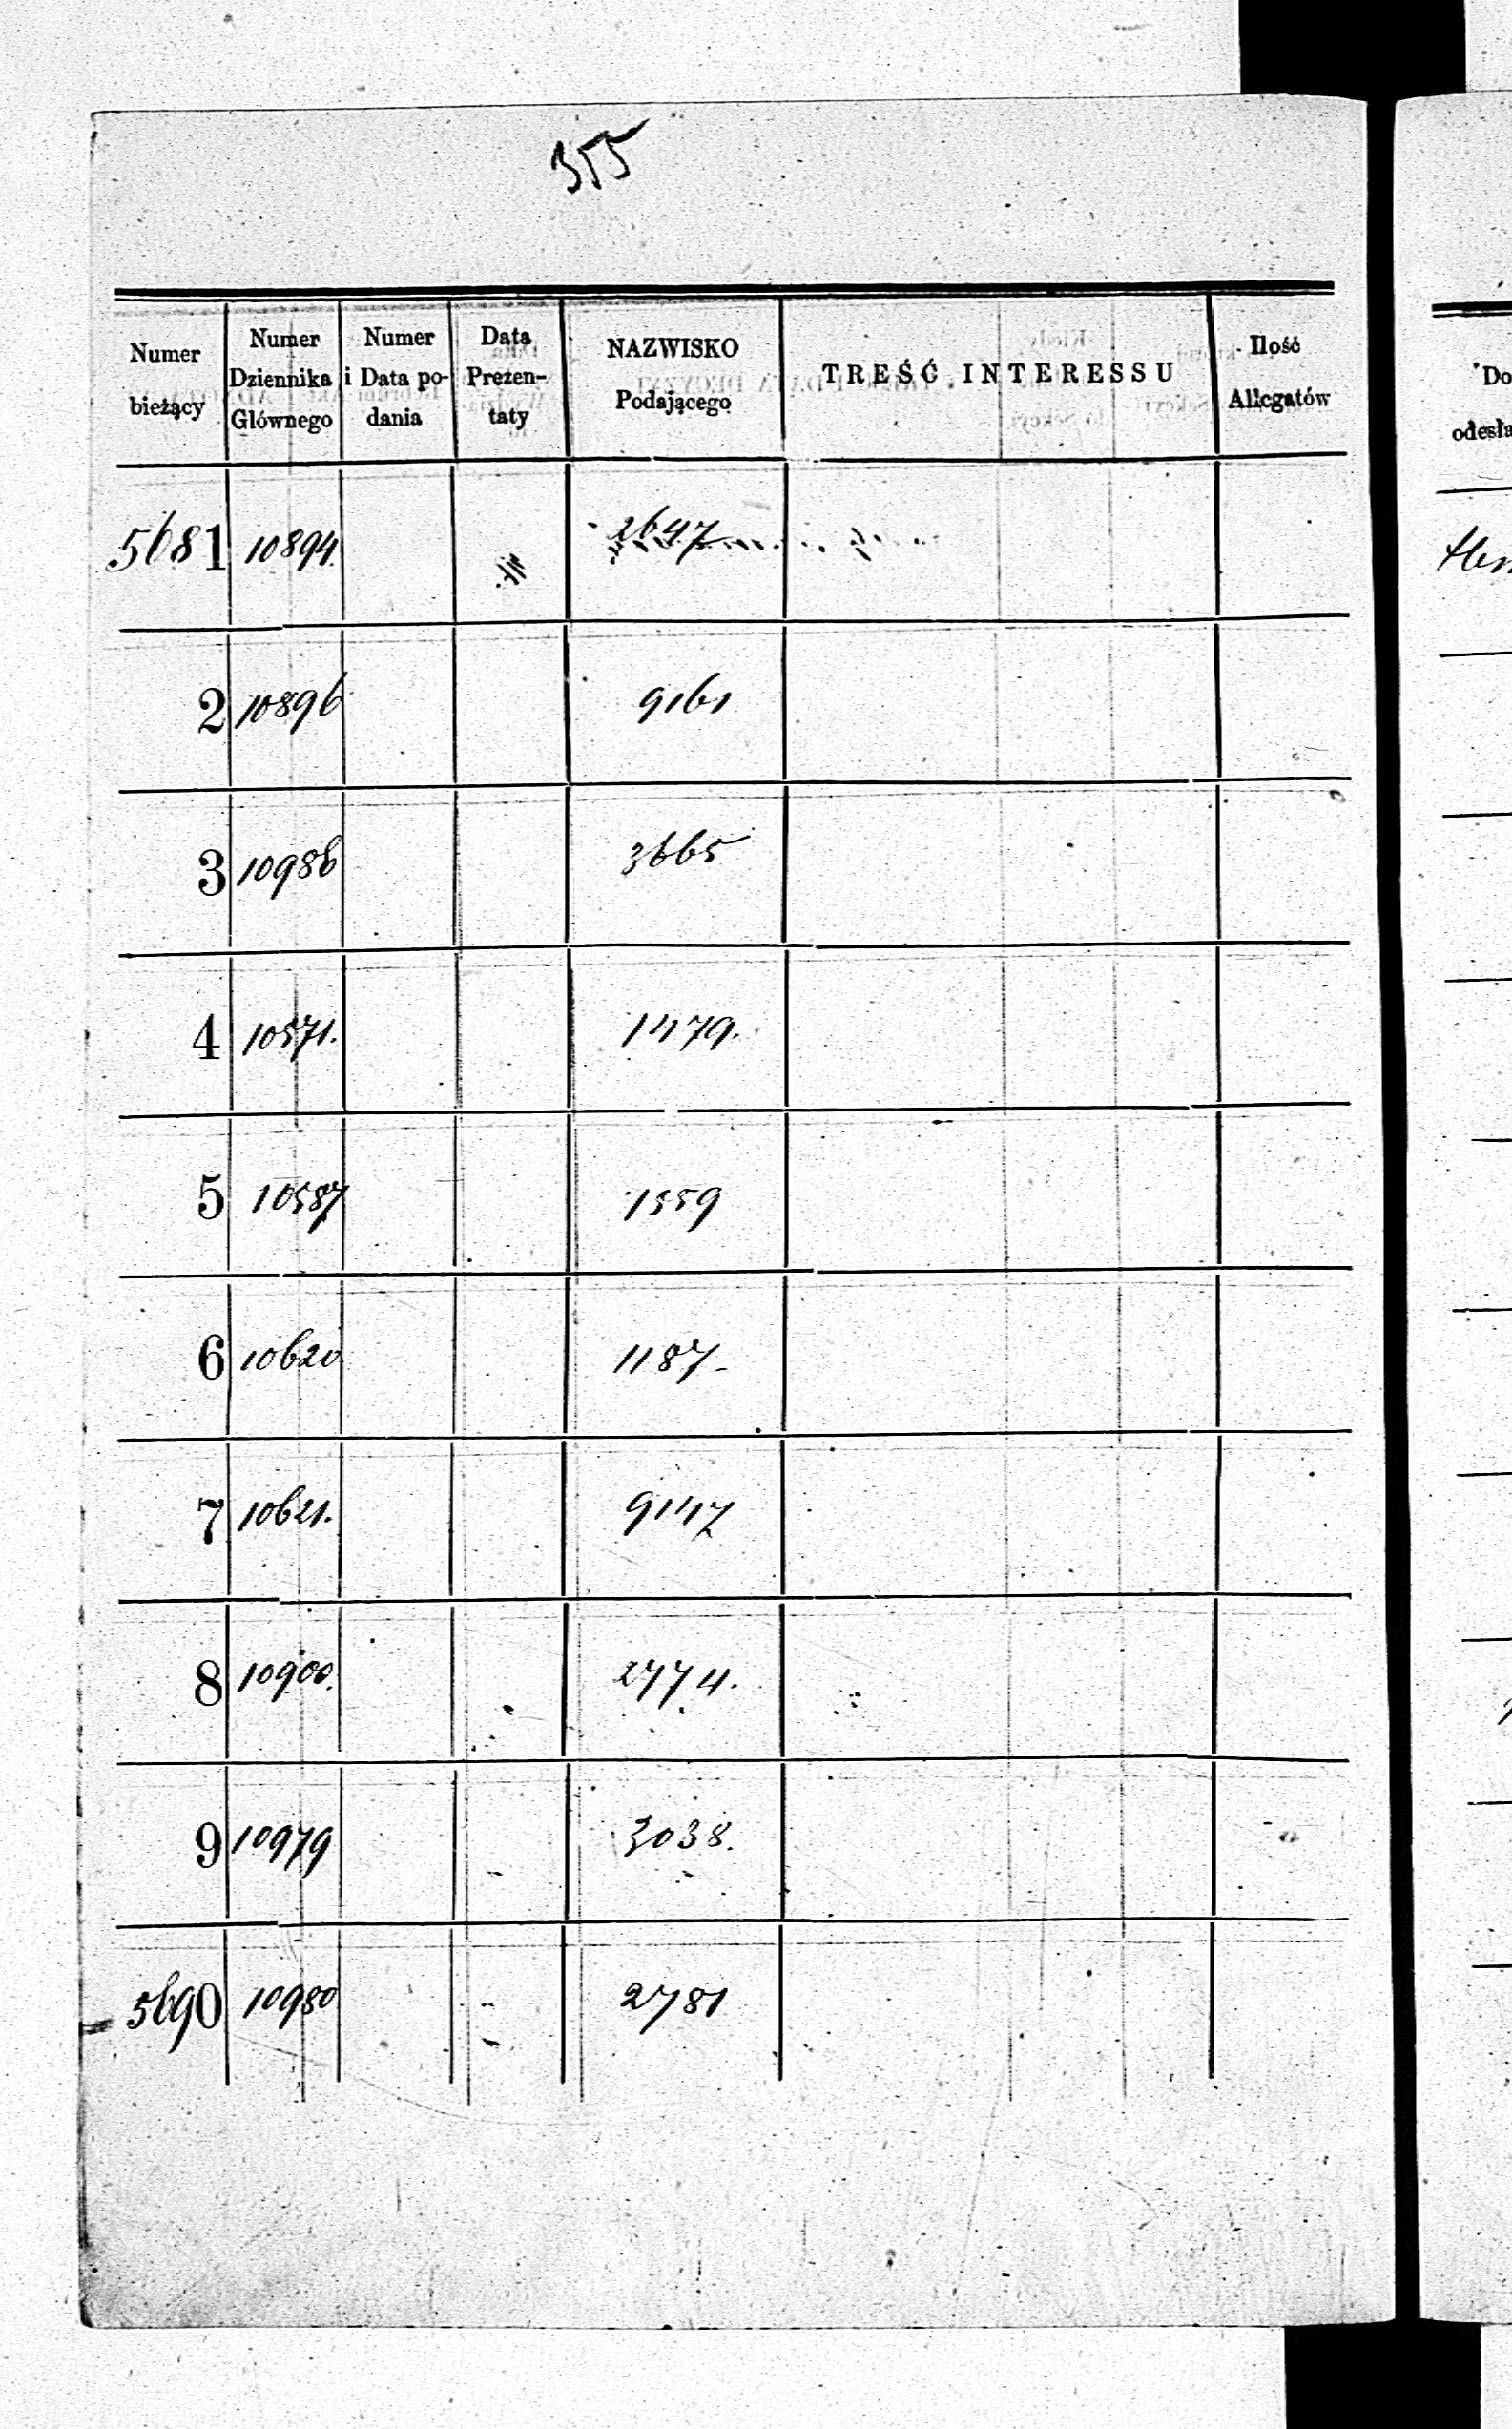 355
Numer bieżący | Numer Dziennika Głównego | Numer i Data podania | Data Prezentaty | NAZWISKO Podającego | TREŚĆ INTERESSU | Ilość Allegatów
5681 10894. 2647
2 10896 9161
3 10986 3665
4 10571. 1479.
5 10587 1559
6 10620 1187.
7 10621. 9147
8 10900. 2774.
9 10979 3038.
5690 10980 2781
Do